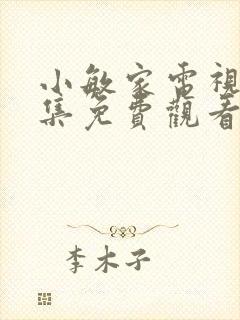 小敏家電視
集免費觀看
李木子